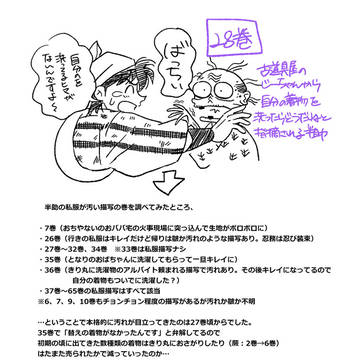 28巻
古道具屋の
じーちゃんから
自分の着物を
洗ったらどうだねと
指摘される半助
ばっちぃ
自分のを
洗ってるヒマが
ないんですよ〜
半助の私服が汚い描写の巻を調べてみたところ、
・7巻（おちやないのおババ宅の火事現場に突っ込んで生地がボロボロに）
・26巻（行きの私服はキレイだけど帰りは皺が汚れのような描写あり。忍務は忍び装束）
・27巻〜32巻、34巻　※33巻は私服描写ナシ
・35巻（となりのおばちゃんに洗濯してもらって一旦キレイに）
・36巻（きり丸に洗濯物のアルバイト頼まれる描写で汚れあり。その後キレイになってるので
自分の着物もついでに洗濯した？）
・37巻〜65巻の私服描写はすべて該当
※6、7、9、10巻もチョンチョン程度の描写があるが汚れか皺か不明
…ということで本格的に汚れが目立ってきたのは27巻頃からでした。
35巻で「替えの着物がなかったんです」と弁解してるので
初期の頃に出てきた数種類の着物はきり丸におさがりしたり（肩：2巻→6巻）
はたまた売られたかで減っていったのか…